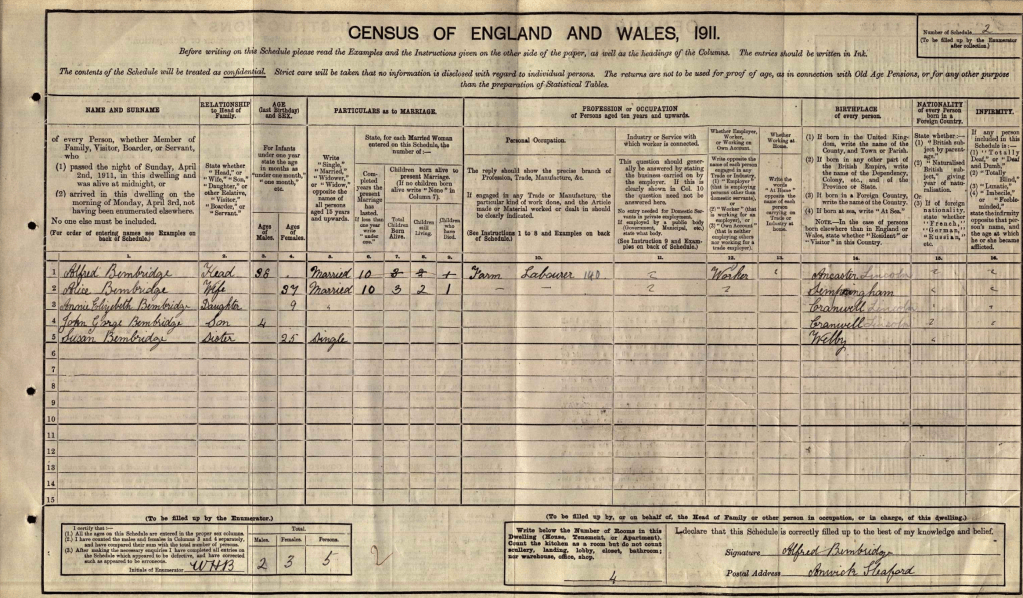 CENSUS OF ENGLAND AND WALES, 1911.
Number of Schedule 2
(To be filled up by the Enumerator after collection.)
Before writing on this Schedule please read the Examples and the Instructions given on the other side of the paper, as well as the headings of the Columns. The entries should be written in Ink.
The contents of the Schedule will be treated as confidential. Strict care will be taken that no information is disclosed with regard to individual persons. The returns are not to be used for proof of age, as in connection with Old Age Pensions, or for any other purpose
than the preparation of Statistical Tables.
NAME AND SURNAME
of every Person, whether Member of Family, Visitor, Boarder, or Servant, who
(1) passed the night of Sunday, April 2nd, 1911, in this dwelling and was alive at midnight, or
(2) arrived in this dwelling on the morning of Monday, April 3rd, not having been enumerated elsewhere.
No one else must be included.
(For order of entering names see Examples on back of Schedule.)
RELATIONSHIP to Head of Family.
State whether "Head," or "Wife," "Son," "Daughter," or other Relative, "Visitor," "Boarder," or "Servant."
AGE (last Birthday) and SEX.
For Infants under one year state the age in months as "under one month," "one month," etc.
Ages of Males.
Ages of Females.
PARTICULARS as to MARRIAGE.
Write "Single," "Married," "Widower," or "Widow," opposite the names of all persons aged 15 years and upwards.
State, for each Married Woman entered on this Schedule, the number of:—
Completed years the present Marriage has lasted. If less than one year write "under one."
Children born alive to present Marriage. (If no children born alive write "None" in Column 7).
Total Children Born Alive.
Children still Living.
Children who have Died.
PROFESSION or OCCUPATION
of Persons aged ten years and upwards.
Personal Occupation.
The reply should show the precise branch of Profession, Trade, Manufacture, &c.
If engaged in any Trade or Manufacture, the particular kind of work done, and the Article made or Material worked or dealt in should be clearly indicated.
(See Instructions 1 to 8 and Examples on back of Schedule.)
Industry or Service with which worker is connected.
This question should generally be answered by stating the business carried on by the employer. If this is clearly shown in Col. 10 the question need not be answered here.
No entry needed for Domestic Servants in private employment. If employed by a public body (Government, Municipal, etc.) state what body.
(See Instruction 9 and Examples on back of Schedule.)
Whether Employer, Worker, or Working on Own Account.
Write opposite the name of each person engaged in any Trade or Industry,
(1) "Employer" (that is employing persons other than domestic servants), or
(2) "Worker" (that is working for an employer), or
(3) "Own Account" (that is neither employing others nor working for a trade employer).
Whether Working at Home.
Write the words "At Home" opposite the name of each person carrying on Trade or Industry at home.
BIRTHPLACE of every person.
(1) If born in the United Kingdom, write the name of the County, and Town or Parish.
(2) If born in any other part of the British Empire, write the name of the Dependency, Colony, etc., and of the Province or State.
(3) If born in a Foreign Country, write the name of the Country.
(4) If born at sea, write "At Sea."
NOTE.—In the case of persons born elsewhere than in England or Wales, state whether "Resident" or "Visitor" in this Country.
NATIONALITY of every Person born in a Foreign Country.
State whether:—
(1) "British subject by parentage."
(2) "Naturalised British subject," giving year of naturalisation.
Or
(3) If of foreign nationality, state whether "French," "German," "Russian," etc.
INFIRMITY.
If any person included in this Schedule is:—
(1) "Totally Deaf," or "Deaf and Dumb,"
(2) "Totally Blind,"
(3) "Lunatic,"
(4) "Imbecile," or "Feeble-minded,"
state the infirmity opposite that person's name, and the age at which he or she became afflicted.
1. 2. 3. 4. 5. 6. 7. 8. 9. 10. 11. 12. 13. 14. 15. 16.
1 Alfred Bembridge Head 36 Married 10 3 2 1 Farm Labourer 140 Worker Ancaster Lincoln
2 Alice Bembridge Wife 37 Married 10 3 2 1 — —
3 Annie Elizebeth Bembridge Daughter 9 Cranwell Lincoln
4 John Gorge Bembridge Son 4 Cranwell Lincoln
5 Susan Bembridge Sister 25 Single Welby
6
7
8
9
10
11
12
13
14
15
(To be filled up by the Enumerator.)
I certify that:—
(1.) All the ages on this Schedule are entered in the proper sex columns.
(2.) I have counted the males and females in Columns 3 and 4 separately, and have compared their sum with the total number of persons.
(3.) After making the necessary enquiries I have completed all entries on the Schedule which appeared to be defective, and have corrected such as appeared to be erroneous.
Initials of Enumerator WHB
Total.
Males. Females. Persons.
2 3 5
2
(To be filled up by, or on behalf of, the Head of Family or other person in occupation, or in charge, of this dwelling.)
Write below the Number of Rooms in this Dwelling (House, Tenement, or Apartment). Count the kitchen as a room but do not count scullery, landing, lobby, closet, bathroom; nor warehouse, office, shop.
4
I declare that this Schedule is correctly filled up to the best of my knowledge and belief.
Signature Alfred Bembridge
Postal Address Anwick Sleaford